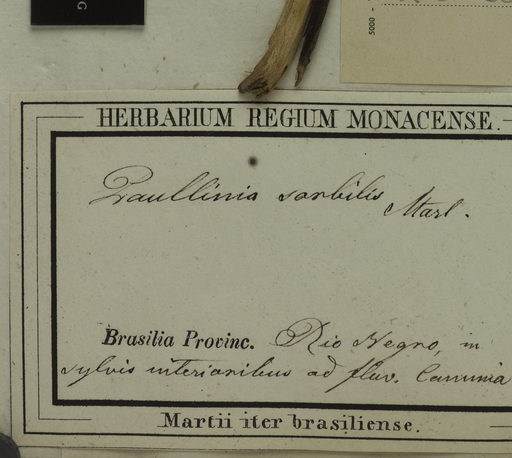 G
5000 -
HERBARIUM REGIUM MONACENSE.
Paullinia sorbilis Mart.
Brasilia Provinc. Rio Negro, in
sylvis interioribus ad fluv.
Martii iter brasiliense.